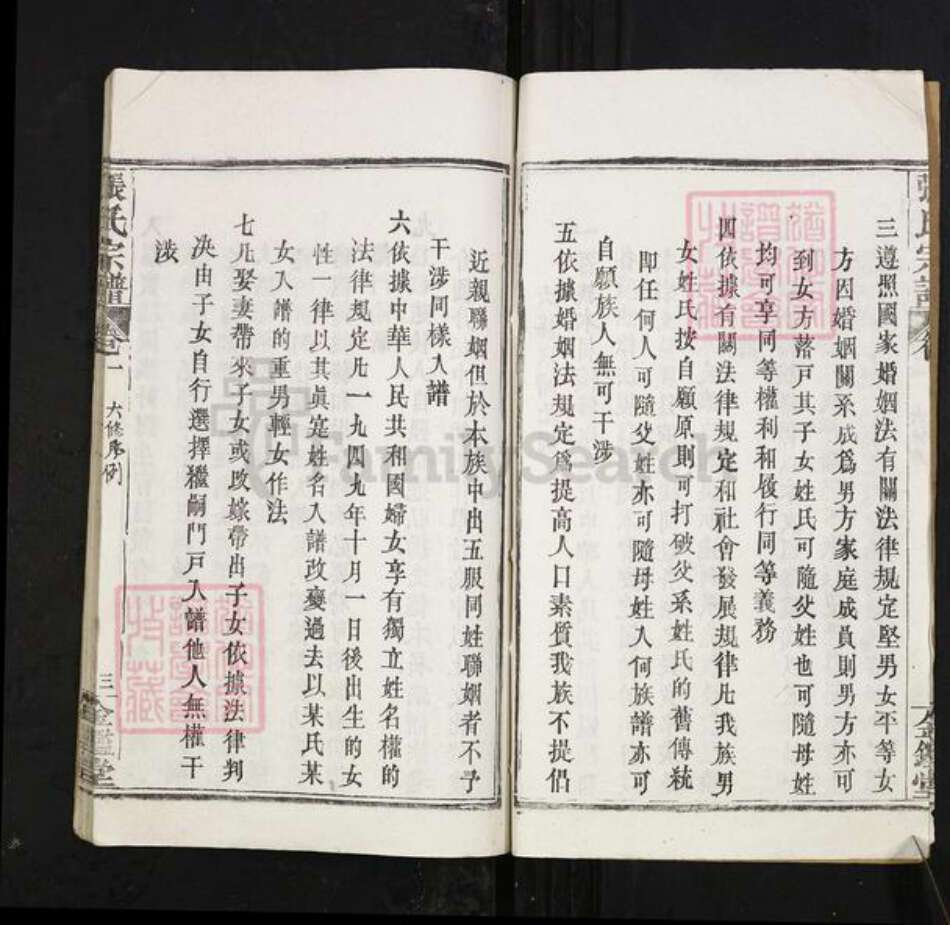 三遵照國家婚姻法有關法律規定堅男女平等女
方因婚姻關系成爲男方家庭成員則男方亦可
到女方落戸其子女姓氏可隨父姓也可隨母姓
均可享同等權利和履行同等義務
四依據有關法律規定和社會發展規律凡我族男
女姓氏按自願原則可打破父系姓氏的舊傳統
即任何人可隨父姓亦可隨母姓入何族譜亦可
自願族人無可干涉
五依據婚姻法規定爲提高人口素質我族不提倡
金鑑堂
近親聯姻但於本族中出五服同姓聯姻者不予
干涉同樣入譜
六依據中華人民共和國婦女享有獨立姓名權的
法律規定凡一九四九年十月一日後出生的女
性一律以其眞寔姓名入譜改變過去以某氏某
女入譜的重男輕女作法
七凡娶妻帶來子女或改嫁帶出子女依據法律判
决由子女自行選擇繼嗣門戸入譜他人無權干
涉
張氏宗譜 卷一 六修凡例 三 金鑑堂
FamilySearch